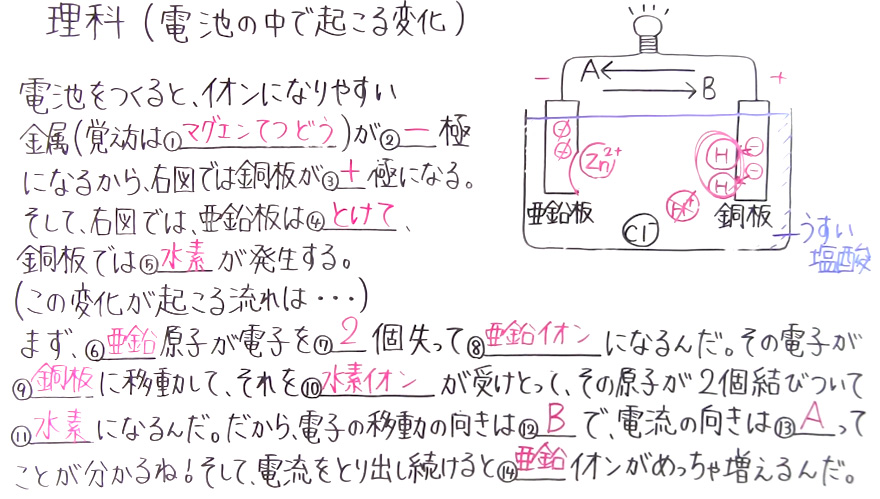 理科(電池の中で起こる変化)
電池をつくると、イオンになりやすい
金属(覚え方は①マグエンてつどう)が②ー極
になるから、右図では銅板が③+極になる。
そして、右図では、亜鉛板は④とけて、
銅板では⑤水素が発生する。
(この変化が起こる流れは・・・)
まず、⑥亜鉛原子が電子を⑦2個失って⑧亜鉛イオンになるんだ。その電子が
⑨銅板に移動して、それを⑩水素イオンが受けとって、その原子が2個結びついて
⑪水素になるんだ。だから、電子の移動の向きは⑫Bで、電流の向きは⑬Aって
ことが分かるね!そして、電流をとり出し続けると⑭亜鉛イオンがめっちゃ増えるんだ。
− A B +
Zn²⁺ H − H −
亜鉛板 Cl⁻ H⁺ 銅板
うすい
塩酸